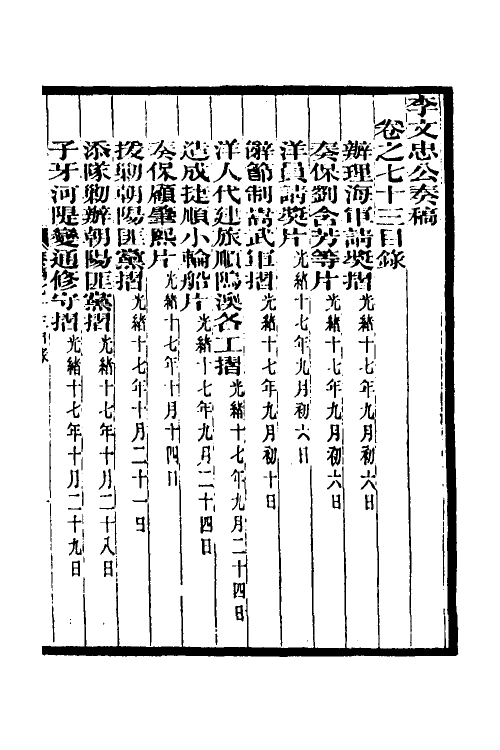 李文忠公奏稿
卷之七十三目錄
辦理海軍請獎摺 光緒十七年九月初六日
奏保劉含芳等片 光緒十七年九月初六日
洋員請獎片 光緒十七年九月初六日
辭節制嵩武軍摺 光緒十七年九月初十日
洋人代建旅順船澳各工摺 光緒十七年九月二十四日
造成捷順小輪船片 光緒十七年九月二十四日
奏保顧肇熙片 光緒十七年十月十四日
撥勦朝陽匪黨摺 光緒十七年十月二十一日
添隊勦辦朝陽匪黨摺 光緒十七年十月二十八日
子牙河隄變通修守摺 光緒十七年十月二十九日